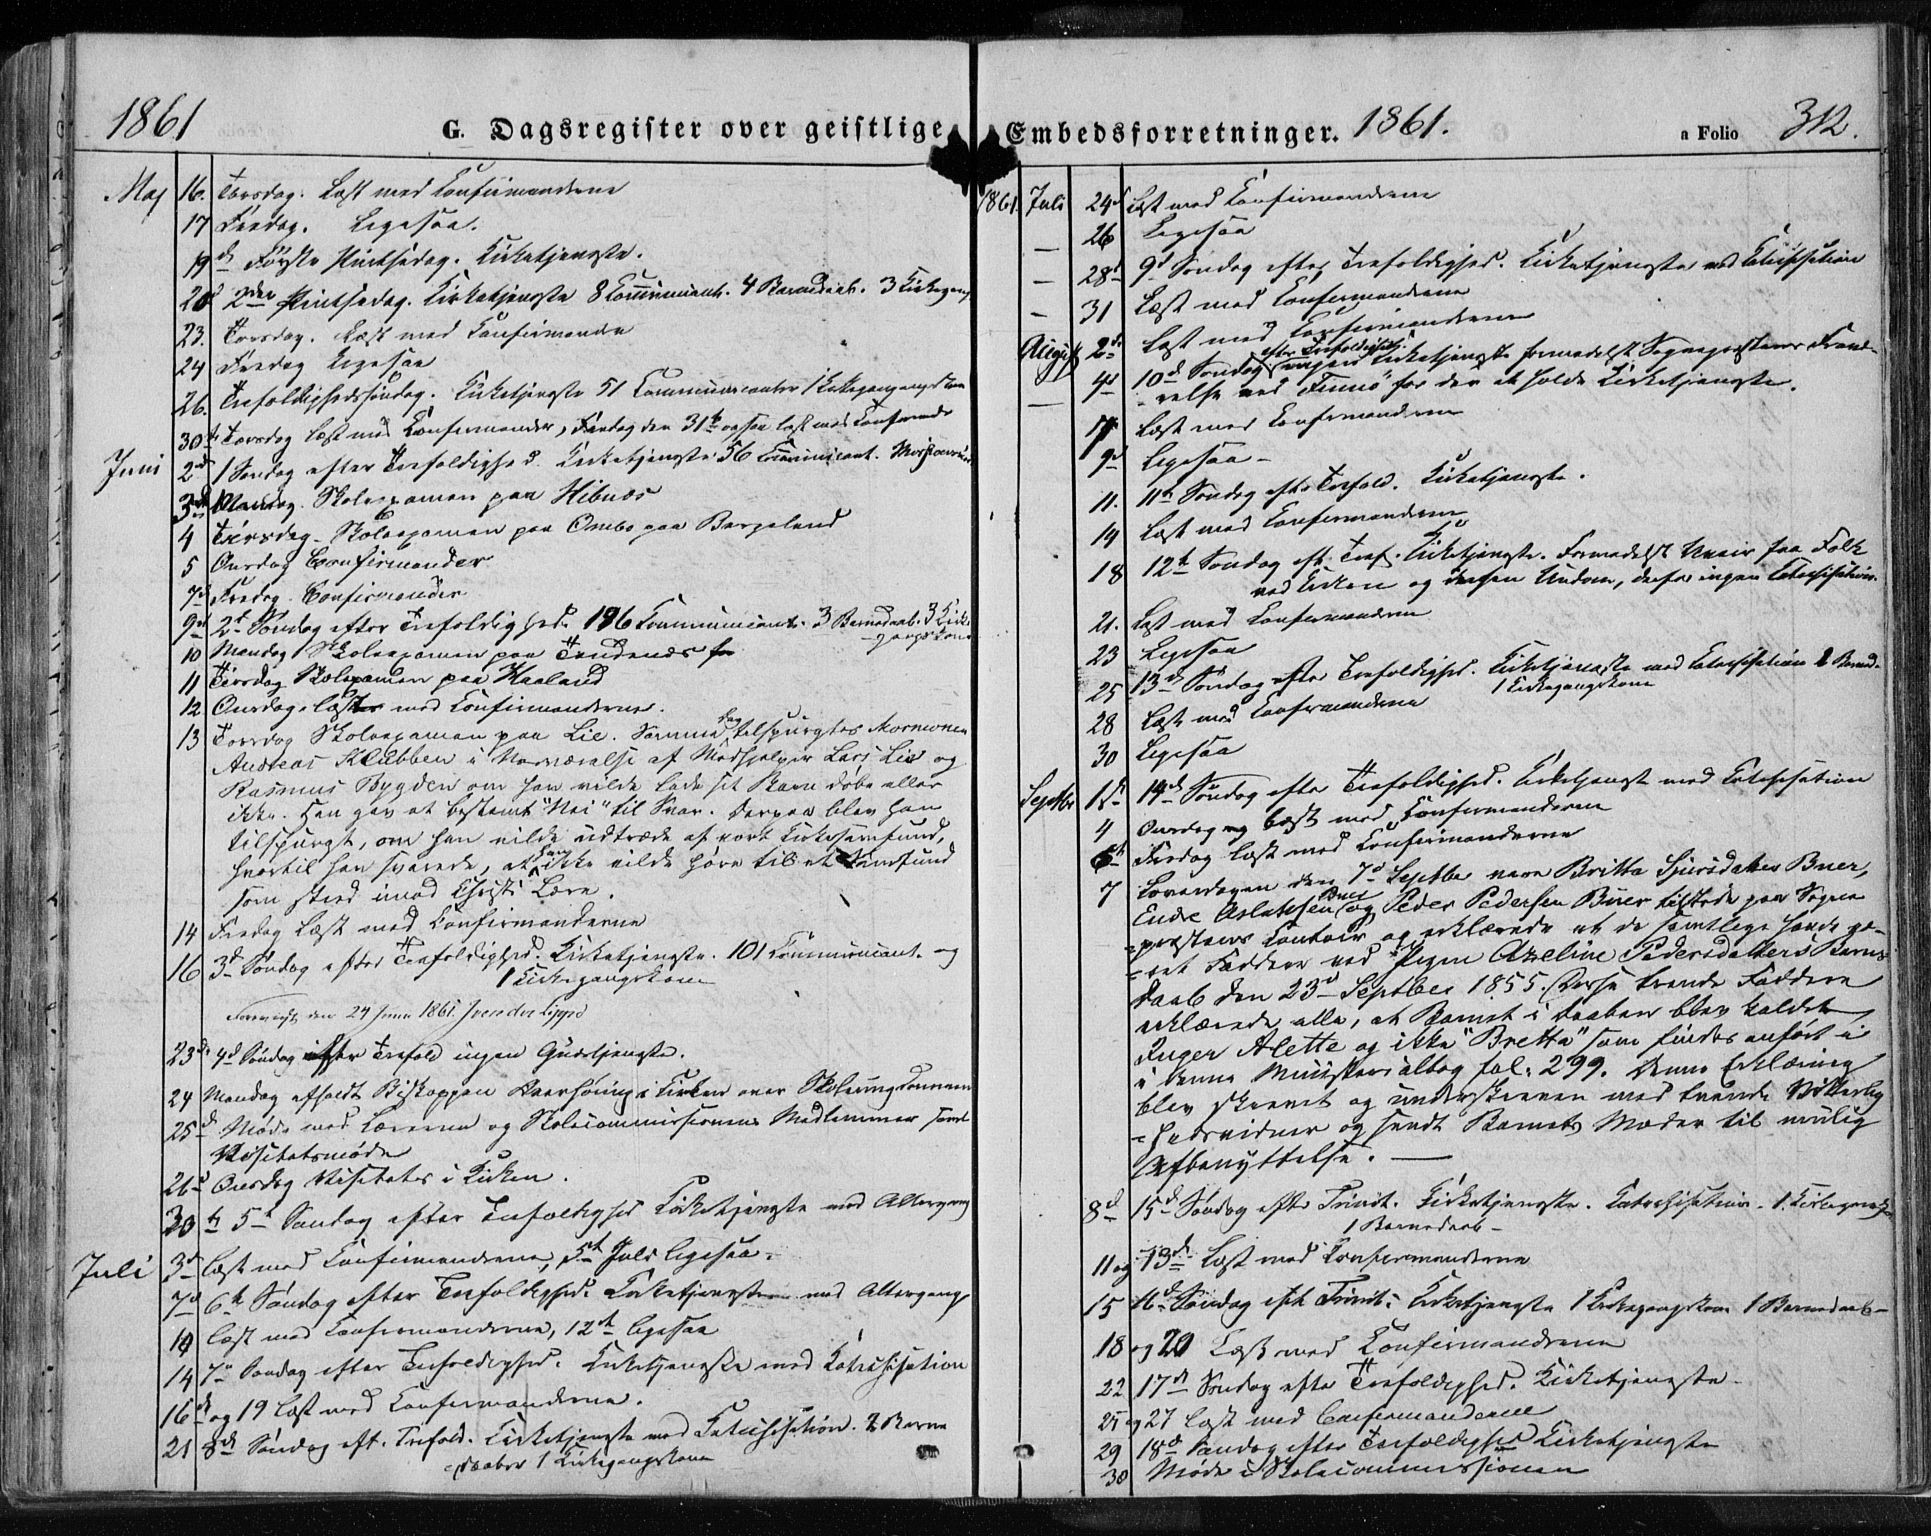 1861
G. Dagsregister over geistlige
Maj 16. Torsdag. Læst med Confirmanderne
17 Fredag. Ligesaa.
19d Første Pintsedag. Kirketjeneste.
20d 2den Pintsedag. Kirketjeneste 8 Communicant. 4 Barnedaab. 3 Kirkegang
23. Torsdag. Læst med Confirmande
24 Fredag Ligesaa
26. Trefoldighedssøndag. Kirketjeneste 51 Communicanter 1 Kirkegangskone
30te Torsdag læst med Confirmander, Fredag den 31te ogsaa læst med Confirmande
Juni 2d 1 Søndag efter Trefoldighed. Kirketjeneste 56 Communicant.
3d Mandag. Skoleexamen paa Hibnæs
4 Tirsdag. Skoleexamen paa Ombo paa Bargeland
5 Onsdag Confirmander
7d Fredag. Confirmander
9d 2d Søndag efter Trefoldighed. 186 Communicant. 3 Barnedaab. 3 Kirke-
gangskone
10 Mandag Skoleexamen paa Tendenæs
11 Tirsdag Skolexamen paa Haaland
12 Onsdag læst med Confirmanderne.
13 Torsdag Skoleexamen paa Lie. Samme dag tilspurgtes Mormonen
Andreas Klubben i Nærværelse af Medhjelper Lars Lie og
Rasmus Bygden om han vilde lade sit Barn døbe eller
ikke. Han gav et bestemt "Nei" til Svar. Derpaa blev han
tilspurgt, om han vilde udtræde af vort Kirkesamfund,
hvortil han svarede, at han ikke vilde høre til et Samfund
som stred imod Christi Lære.
14 Fredag Læst med Confirmanderne
16 3d Søndag efter Trefoldighed. Kirketjeneste. 101 Communicant. og
1 Kirkegangskone
Foreviist den 24 Juni 1861.
23d 4d Søndag efter Trefold ingen Gudstjeneste.
24 Mandag afholdt Biskoppen Overhøring i Kirken over Skoleungdommen
25d Møde med Lærerne og Skolecommissionens Medlemmer samt
Visitatsmøde
26d Onsdag Visitats i Kirken.
30te 5te Søndag efter Trefoldighed Kirketjeneste med Altergang
Juli 3d læst med Confirmanderne, 5te Juli ligesaa.
7d 6te Søndag efter Trefoldighed. Kirketjeneste med Altergang
10 læst med Confirmanderne, 12te ligesaa
14 7de Søndag efter Trefoldighed. Kirketjeneste med Katechisation
16d og 19 læst med Confirmanderne.
21 8d Søndag eft. Trefold. Kirketjeneste med Katechisation. 2 Barne
daaber 1 Kirkegangskone
Embedsforretninger. 1861. a Folio 312.
1861. Juli 24d Læst med Confirmanderne
26 Ligesaa
— 28d 9d Søndag efter Trefoldighed. Kirketjeneste med Catechisation
— 31 Læst med Confirmanderne
August 2d Læst med Confirmanderne
efter Trefoldighed.
— 4d 10d Søndag ingen Kirketjeneste formedelst Sognepræstens Fravæ-
relse ved Finnø for der at holde Kirketjeneste.
7 Læst med Confirmanderne
9d Ligesaa –
11. 11te Søndag eft. Trefold. Kirketjeneste.
14 Læst med Confirmanderne
18 12te Søndag eft. Tref. Kirketjeneste. Formedelst Uveir faa Folk
ved Kirken og ingen Ungdom, derfor ingen Catechisation.
21. Læst med Confirmanderne
23 Ligesaa
25 13de Søndag efter Trefoldighed. Kirketjeneste med Catechisation 2 Barned.
1 Kirkegangskone
28 Læst med Confirmanderne
30 Ligesaa
Septbr 1d 14d Søndag efter Trefoldighed. Kirketjenest med Catechisation
4 Onsdag læst med Confirmanderne
6te Fredag læst med Confirmanderne
7 Løverdagen den 7d Septbr vare Britta Sjursdatter Buer,
Endre Aslaksen Buer og Peder Pedersen Buer tilstede paa Sogne
præstens Contoir og erklærede at de samtlige havde væ-
ret Faddere ved Pigen Azeline Pedersdatters Barne
daab den 23d Septber 1855. Disse trende Faddere
erklærede alle, at Barnet i Daaben blev kaldet
Inger Alette og ikke "Bretta" som findes anført i
i denne Ministerialbog fol. 299. Denne Erklæring
blev skrevet og underskreven med tvende Vitterlig
hedsvidner og sendt Barnets Moder til mulig
Afbenyttelse. —
8d 15d Søndag efter Trinit. Kirketjeneste. Katechisation. 1 Kirkegangsk.
1 Barnedaab –
11 og 13d Læst med Confirmanderne
15 16d Søndag efter Trinit. Kirketjeneste 1 Kirkegangskone 1 Barnedaab –
18 og 20 Læst med Confirmanderne
22 17de Søndag efter Trefoldighed. Kirketjeneste
25 og 27 læst med Confirmanderne
29 18d Søndag efter Trefoldighed Kirketjeneste
30 Møde i Skolecommissionen